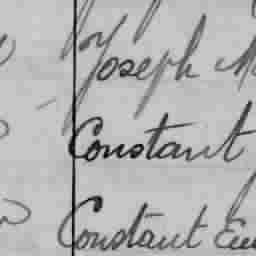 Joseph
Constant
Constant